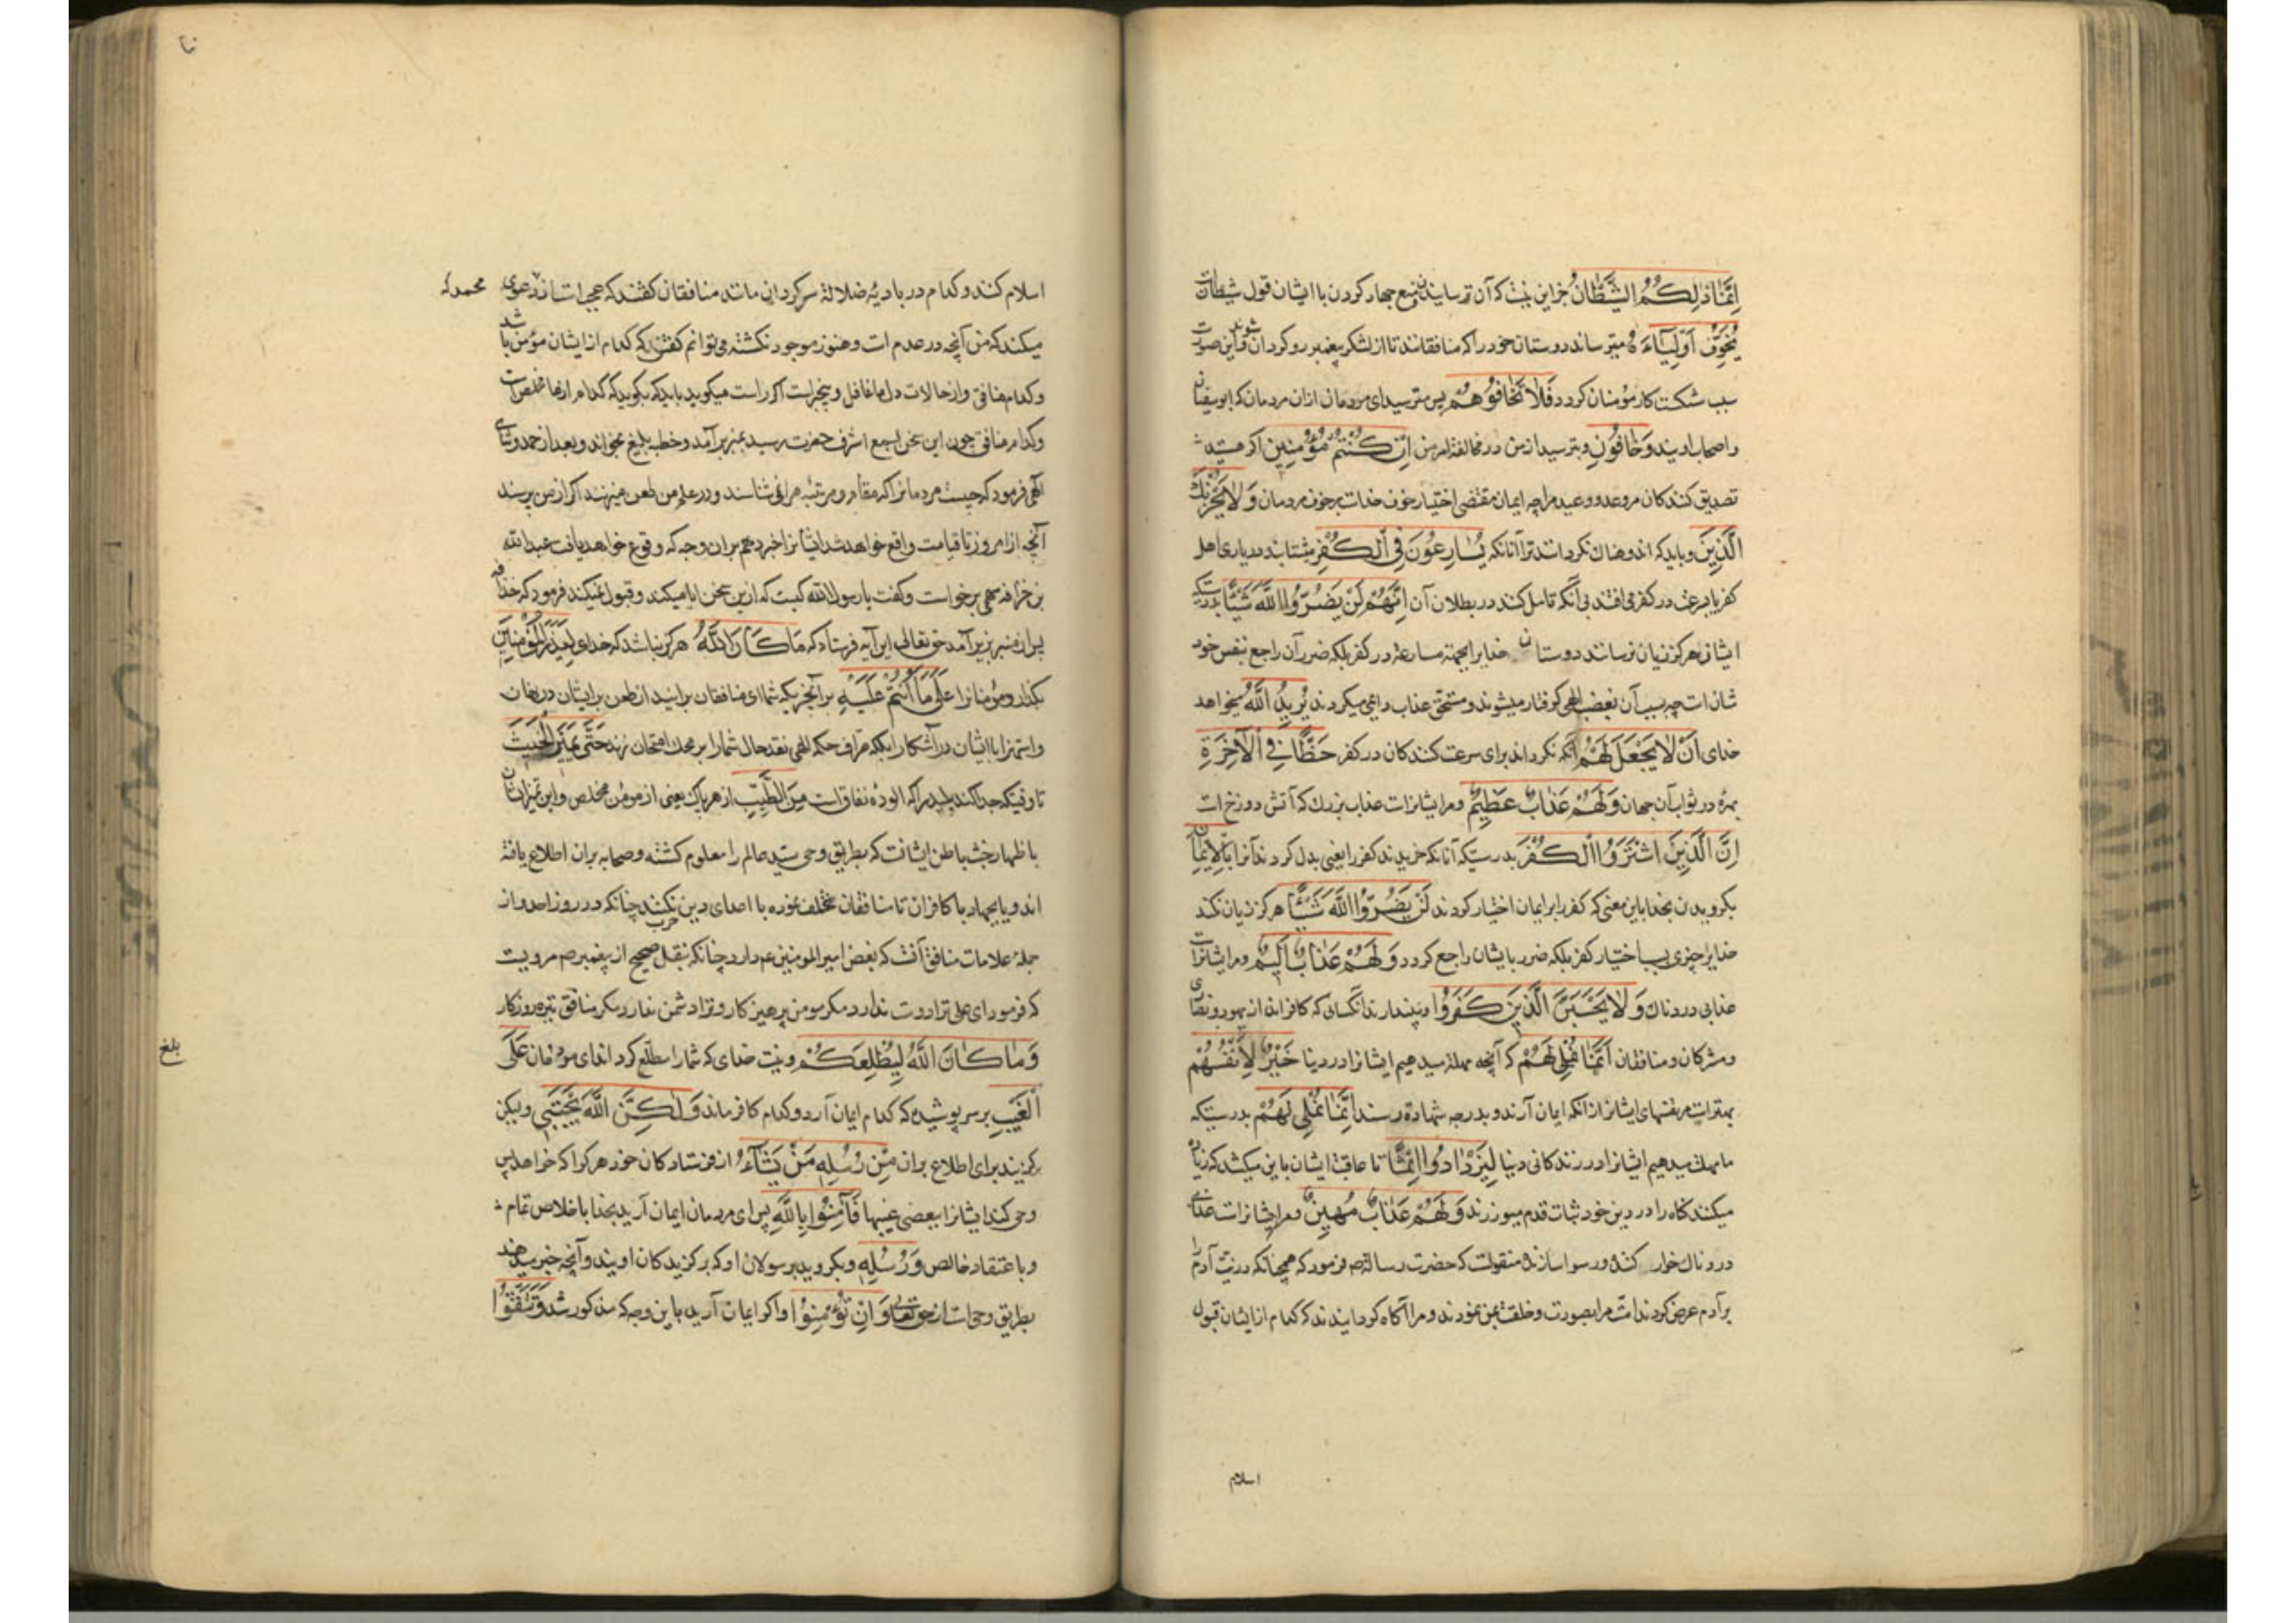 اِنَّمَا ذٰلِكُمُ الشَّيْطَانُ جز این نیست که آن ترسانیدن و منع جهاد کردن با ایشان قول شیطانست
يُخَوِّفُ اَوْلِيَآءَهُ میترساند دوستان خود را که منافقانند تا از لشکر پیغمبر رو کردان شوند و این صورت
سبب شکست کار مؤمنان کردد فَلَا تَخَافُوهُمْ پس مترسید ای مردمان ازان مردمان که ابوسفیان
و اصحاب اویند وَخَافُونِ و بترسید از من در مخالفة امر من اِنْ كُنْتُمْ مُؤْمِنِينَ اکر هستید
تصدیق کنندکان مر وعد و وعید مرا چه ایمان مقتضی اختیار خوف خداست بر خوف مردمان وَلَا يَحْزُنْكَ
الَّذِينَ و باید که اندوهناک نکردانند ترا آنانکه يُسَارِعُونَ فِي الْكُفْرِ میشتابند در یاری اهل
کفر یا بسرعت در کفر می افتند بی آنکه تامل کنند در بطلان آن اِنَّهُمْ لَنْ يَضُرُّوا اللَّهَ شَيْئًا بدرستیکه
ایشان هرکز زیان نرسانند دوستان خدایرا بجهة مسارعة در کفر بلکه ضرر آن راجع بنفس خود
شانست چه بسبب آن بغضب الهی کرفتار میشوند و مستحق عذاب دایمی میکردند يُرِيدُ اللَّهُ میخواهد
خدای اَنْ لَا يَجْعَلَ لَهُمْ آنکه نکرداند برای سرعت کنندکان در کفر حَظًّا فِي الْآخِرَةِ
بهره در ثواب آن جهان وَلَهُمْ عَذَابٌ عَظِيمٌ و مر ایشانراست عذاب بزرك که آتش دوزخ است
اِنَّ الَّذِينَ اشْتَرَوُا الْكُفْرَ بدرستیکه آنانکه خریدند کفر را یعنی بدل کردند آنرا بِالْاِيمَانِ
بکرویدن بخدا باین معنی که کفر را بر ایمان اختیار کردند لَنْ يَضُرُّوا اللَّهَ شَيْئًا هرکز زیان نکند
خدایرا چیزی بسبب اختیار کفر بلکه ضرر بایشان راجع کردد وَلَهُمْ عَذَابٌ اَلِيمٌ و مر ایشانراست
عذابی دردناك وَلَا يَحْسَبَنَّ الَّذِينَ كَفَرُوا و نپندارند آنکسانی که کافرانند از یهود و نصاری
و مشرکان و منافقان اَنَّمَا نُمْلِي لَهُمْ که آنچه مهلة میدهیم ایشانرا در دنیا خَيْرٌ لِاَنْفُسِهِمْ
بهتر است مر نفسهای ایشانرا از انکه ایمان آرند و بدرجه شهادة رسند اِنَّمَا نُمْلِي لَهُمْ بدرستیکه
ما مهلت میدهیم ایشانرا در زندکانی دنیا لِيَزْدَادُوا اِثْمًا تا عاقبة ایشان باین میکشد که زیاده
میکنند کناه را و در دین خود ثبات قدم میورزند وَلَهُمْ عَذَابٌ مُهِينٌ و مر ایشانراست عذابی
دردناك خوار کننده و رسوا سازنده منقولست که حضرت رسالة ص فرمود که همچنانکه ذریت آدم را
بر آدم عرض کردند امّت مرا بصورت و خلقت بمن نمودند و مرا آکاه کردانیدند که کدام از ایشان قبول
اسلام
اسلام کنند و کدام در بادیهٔ ضلالة سرکردانی مانند منافقان کفتند که عجبست از دعوی محمد که
میکند که من آنچه در عدم است و هنوز موجود نکشته می توانم کفتن که کدام از ایشان مؤمن باشد
و کدام منافق و از حالات دلها غافل و بیخبر است اکر راست میکوید باید که بکوید که کدام از ما مخلص است
و کدام منافق چون این سخن بسمع اشرف حضرت رسید بمنبر برآمد و خطبه بلیغ بخواند و بعد از حمد و ثنای
الهی فرمود که چیست مردمانرا که مقام و مرتبه مرا نمی شناسند و در علم من طعن میزنند اکر از من پرسند
آنچه از امروز تا قیامت واقع خواهد شد ایشانرا خبر دهم بران وجه که وقوع خواهد یافت عبدالله
بن حذافه سهمی برخواست و کفت یا رسول الله کیست که ازین سخن ابا میکند و قبول نمیکند فرمود که حذافه
پس از منبر بزیر آمد حق تعالی این آیه فرستاد که مَا كَانَ اللَّهُ هرکز نباشد که خدای لِيَذَرَ الْمُؤْمِنِينَ
بکذارد مؤمنانرا عَلَى مَا اَنْتُمْ عَلَيْهِ بر آنچیزیکه شما ای منافقان برانید از طعن بر ایشان در نهان
و استهزا با ایشان در آشکارا بلکه صراف حکمة الهی نقد حال شما را بر محك امتحان زند حَتَّى يَمِيزَ الْخَبِيثَ
تا وقتیکه جدا کند پلید را که آلودهٔ نفاق است مِنَ الطَّيِّبِ از هر پاك یعنی از مومن مخلص و این تمیز ایشان
باظهار خبث باطن ایشانست که بطریق وحی سید عالم را معلوم کشته و صحابه بران اطلاع یافته
اند و یا بجهاد با کافران تا منافقان تخلف نموده با اعدای دین حرب نکنند چنانکه در روز احد و از
جملهٔ علامات منافق آنست که بغض امیر المومنین ع م دارد چنانکه بنقل صحیح از پیغمبر ص مرویست
که فرمود ای علی ترا دوست ندارد مکر مومن پرهیزکار و ترا دشمن ندارد مکر منافق تیره روزکار
وَمَا كَانَ اللَّهُ لِيُطْلِعَكُمْ و نیست خدای که شما را مطلع کرداند ای مردمان عَلَى
الْغَيْبِ بر سر پوشیده که کدام ایمان آرد و کدام کافر ماند وَلٰكِنَّ اللَّهَ يَجْتَبِي ولیکن
برکزیند برای اطلاع بران مِنْ رُسُلِهِ مَنْ يَشَآءُ از فرستادکان خود هر کرا که خواهد پس
وحی کند ایشانرا ببعضی غیبها فَآمِنُوا بِاللَّهِ پس ای مردمان ایمان آرید بخدا باخلاص تمام
و باعتقاد خالص وَرُسُلِهِ و بکروید برسولان او که برکزیدکان اویند و آنچه خبر میدهند
بطریق وحی است از حق تعالی وَاِنْ تُؤْمِنُوا و اکر ایمان آرید باین وجه که مذکور شد وَتَتَّقُوا
بلغ